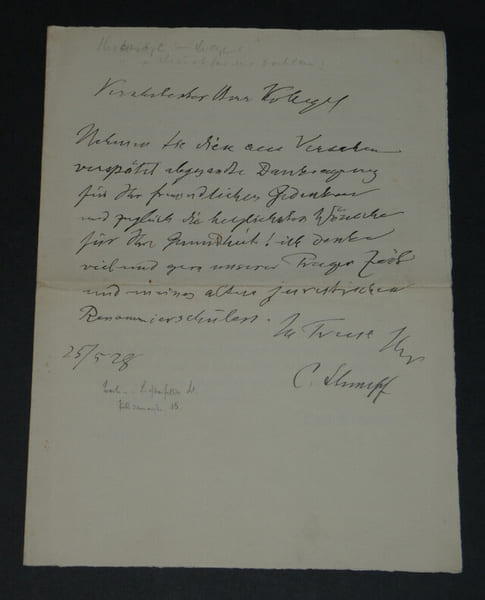 Verehrtester Herr Kollege!
Nehmen Sie diese aus Versehen
verspätet abgesandte Danksagung
für Ihr freundliches Gedenken
und zugleich die herzlichsten Wünsche
für Ihre Gesundheit! ich denke
viel und gern unserer Prager Zeit
und meines alten juristischen
Renommierschülers.
In Treue Ihr
C. Stumpf
25/5 28